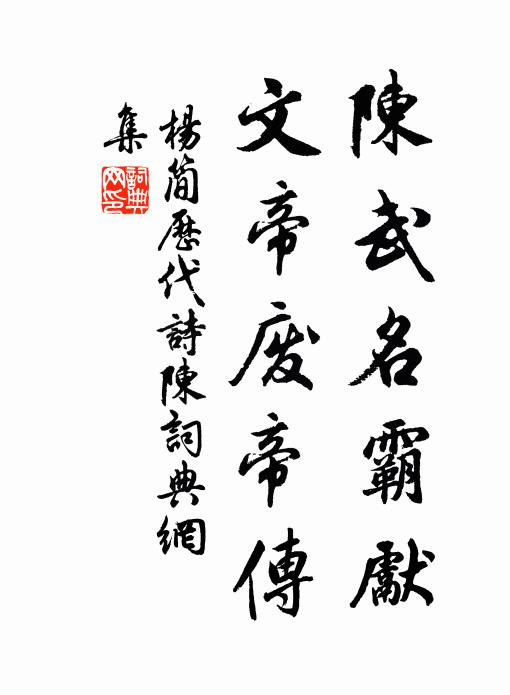 陳武名霸獻
文帝废帝傳
楊簡歷代詩陳詞典網
集
詞典
网印